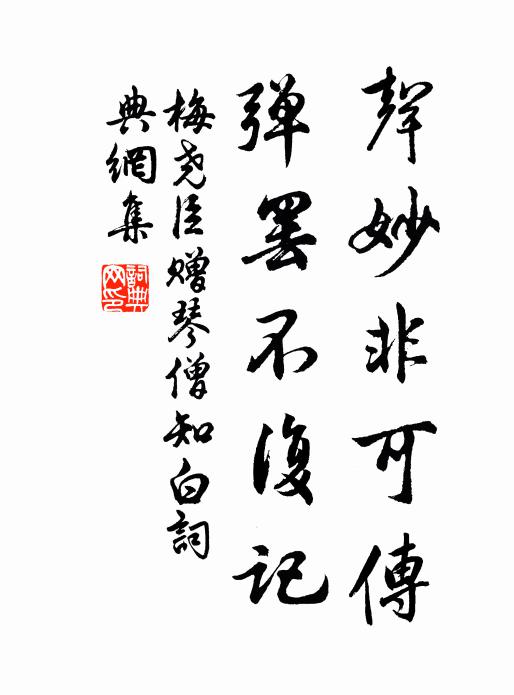 聲妙非可傳
彈罷不復記
梅堯臣贈琴僧知白詞
典網集
詞典網印